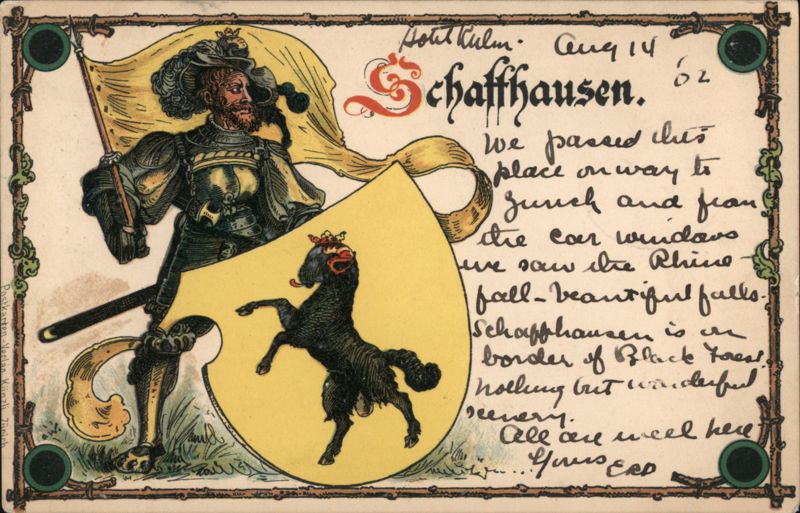 Hotel Kulm. Aug 14
'02
Schaffhausen.
We passed this
place on way to
Zurich and from
the car windows
we saw the Rhine
fall - beautiful falls.
Schaffhausen is on
border of Black Forest.
Nothing but wonderful
scenery.
All are well here
Yours ERD
Postkarten-Verlag Künzli, Zürich